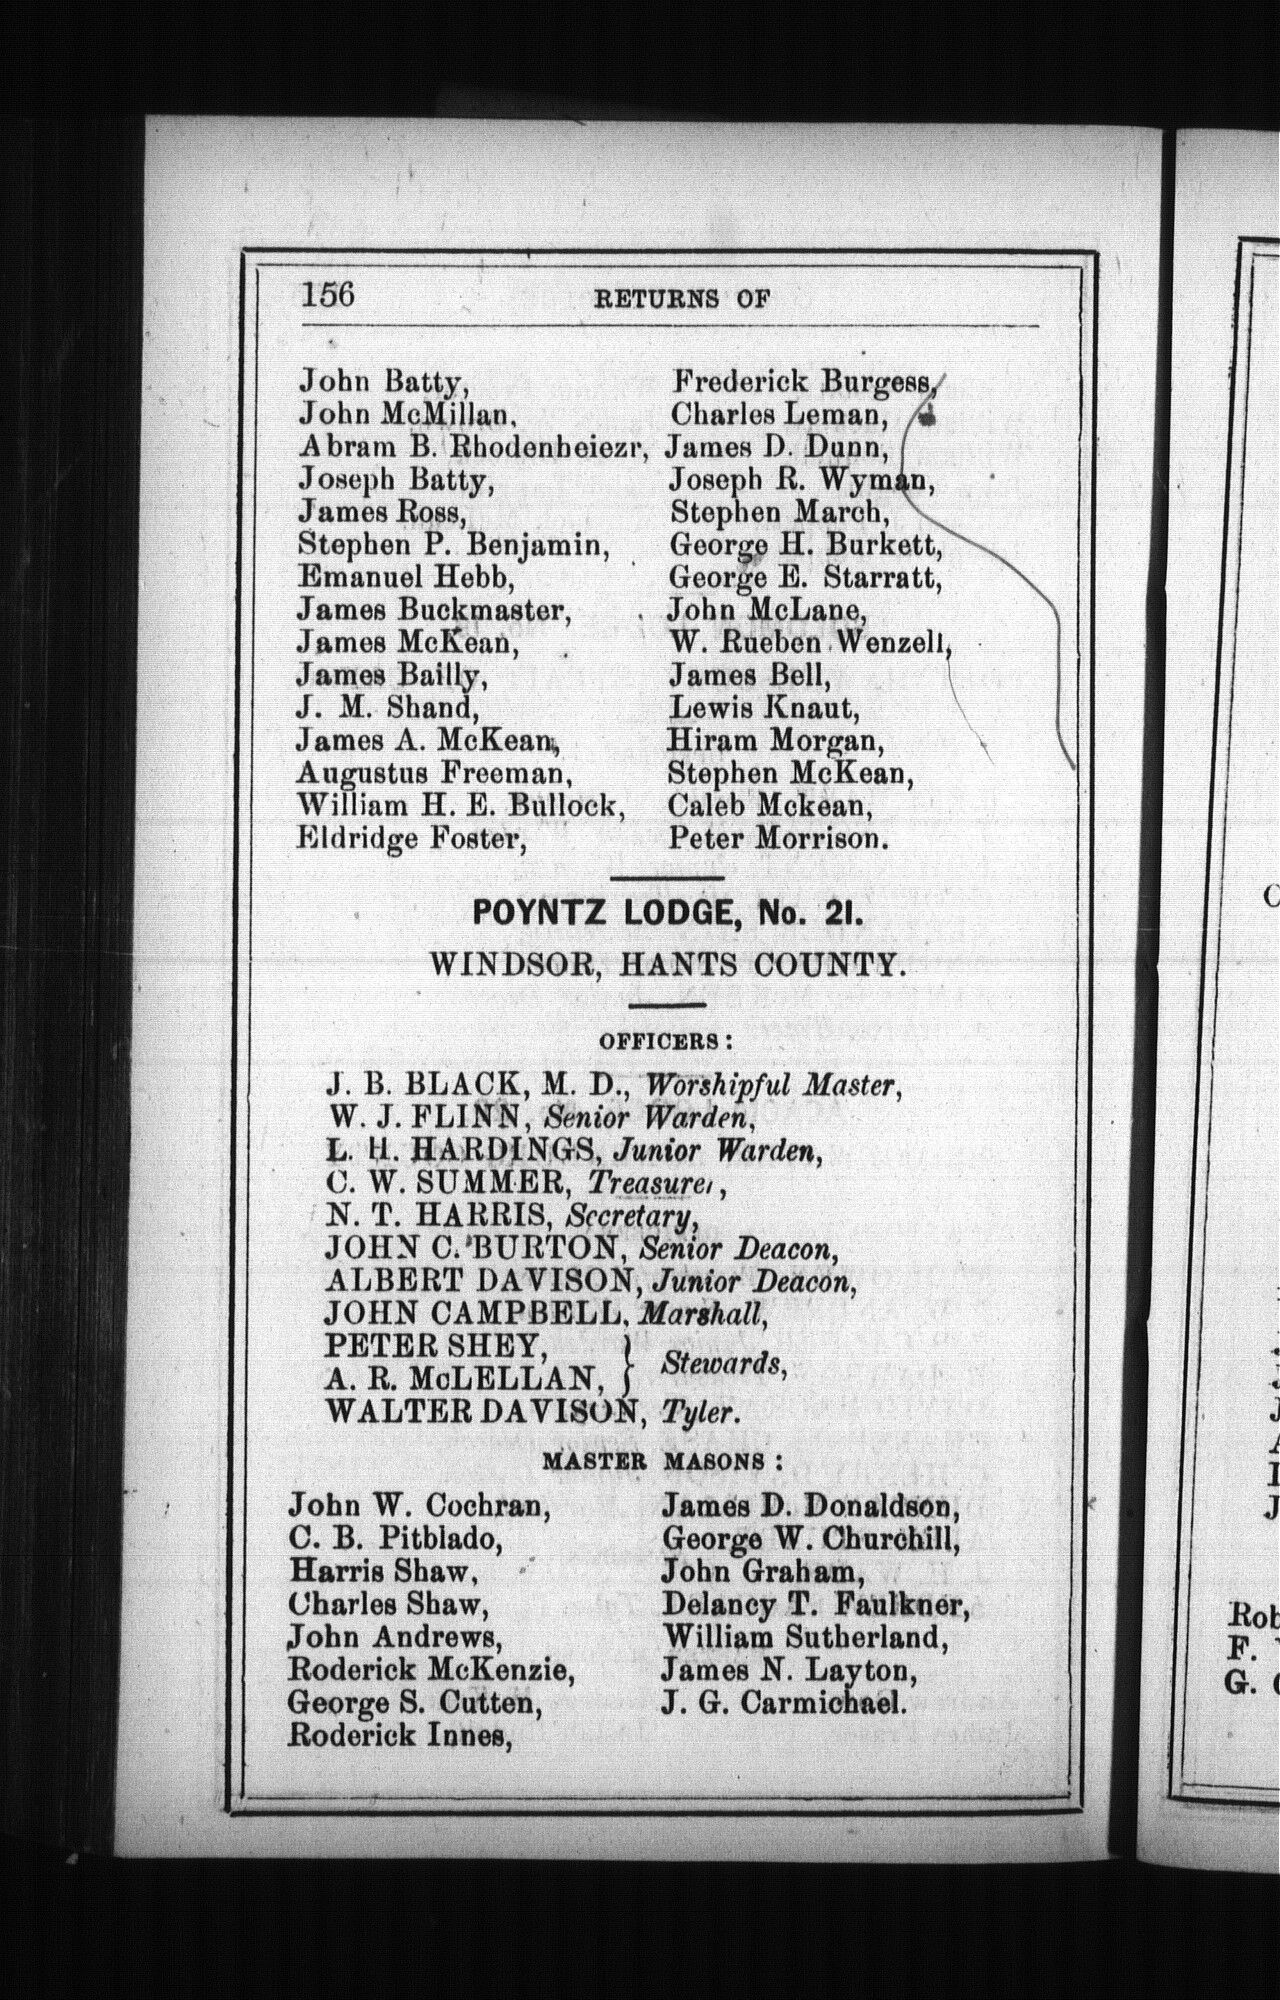 156 RETURNS OF
John Batty, Frederick Burgess,
John McMillan, Charles Leman,
Abram B. Rhodenheiezr, James D. Dunn,
Joseph Batty, Joseph R. Wyman,
James Ross, Stephen March,
Stephen P. Benjamin, George H. Burkett,
Emanuel Hebb, George E. Starratt,
James Buckmaster, John McLane,
James McKean, W. Rueben Wenzell,
James Bailly, James Bell,
J. M. Shand, Lewis Knaut,
James A. McKean, Hiram Morgan,
Augustus Freeman, Stephen McKean,
William H. E. Bullock, Caleb Mckean,
Eldridge Foster, Peter Morrison.
POYNTZ LODGE, No. 21.
WINDSOR, HANTS COUNTY.
OFFICERS:
J. B. BLACK, M. D., Worshipful Master,
W. J. FLINN, Senior Warden,
L. H. HARDINGS, Junior Warden,
C. W. SUMMER, Treasurer,
N. T. HARRIS, Secretary,
JOHN C. BURTON, Senior Deacon,
ALBERT DAVISON, Junior Deacon,
JOHN CAMPBELL, Marshall,
PETER SHEY,
A. R. McLELLAN, } Stewards,
WALTER DAVISON, Tyler.
MASTER MASONS:
John W. Cochran, James D. Donaldson,
C. B. Pitblado, George W. Churchill,
Harris Shaw, John Graham,
Charles Shaw, Delancy T. Faulkner,
John Andrews, William Sutherland,
Roderick McKenzie, James N. Layton,
George S. Cutten, J. G. Carmichael.
Roderick Innes,